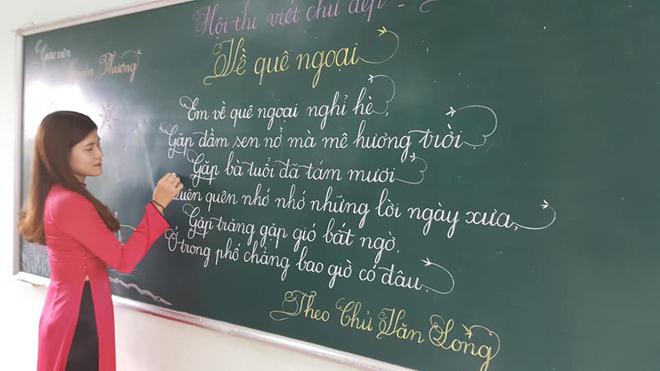 Hội thi viết chữ đẹp
Giáo viên
Thương
Về quê ngoại
Em về quê ngoại nghỉ hè,
Gặp đầm sen nở mà mê hương trời
Gặp bà tuổi đã tám mươi
Quên quên nhớ nhớ những lời ngày xưa,
Gặp trăng gặp gió bất ngờ,
Ở trong phố chẳng bao giờ có đâu.
Theo Chử Văn Long